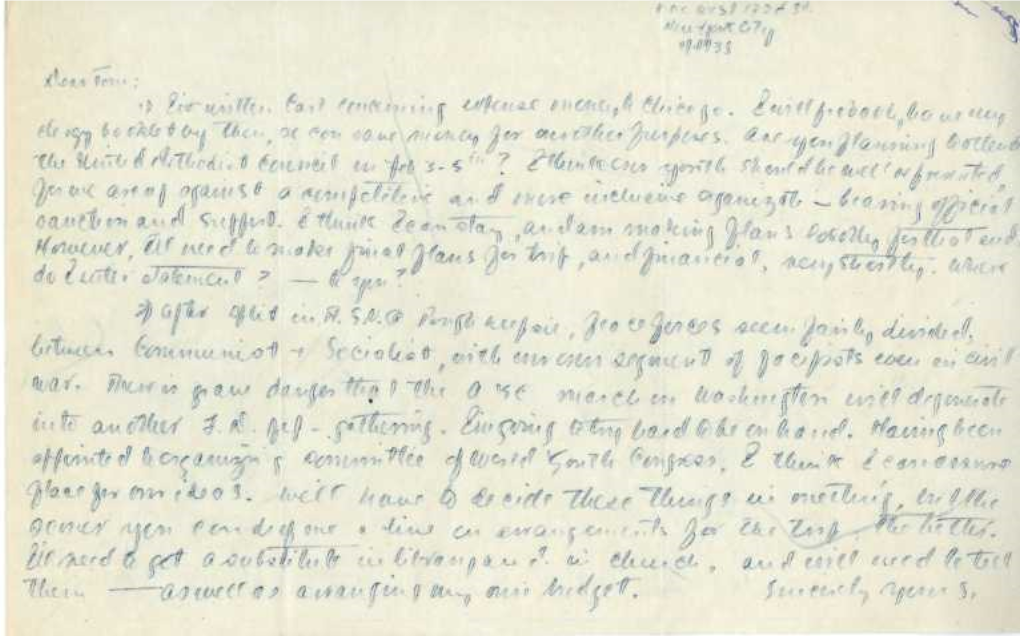 New York City
Dear Tom:
1) I've written Carl concerning expense money to Chicago. I will probably have my
clergy booklet by then, so can save money for another purposes. Are you planning to attend
the United Methodist Council in Feb 3-5th? I think our youth should be well represented,
against a competitive and more inclusive organizatn — bearing official
sanction and support. I think I can stay, and am making plans for that end.
However, I'll need to make final plans for trip, and financial, very shortly. Where
do I enter statement? — to you?
2) After split in A.S.U. @ Poughkeepsie, peace forces seem fairly divided,
between Communist + Socialist, with our own segment of pacifists even on civil
war. There is grave danger that the AYC march on Washington will degenerate
into another F.R. pep-gathering. I'm going to try hard to be on hand. Having been
appointed to organizing committee of World Youth Congress, I think I can
place for our ideas. We'll have to decide these things in meeting, but the
sooner you can drop me a line on arrangements for the trip the better.
I'll need to get a substitute in library and in church, and will need to tell
them — as well as arranging my own budget. Sincerely yours,